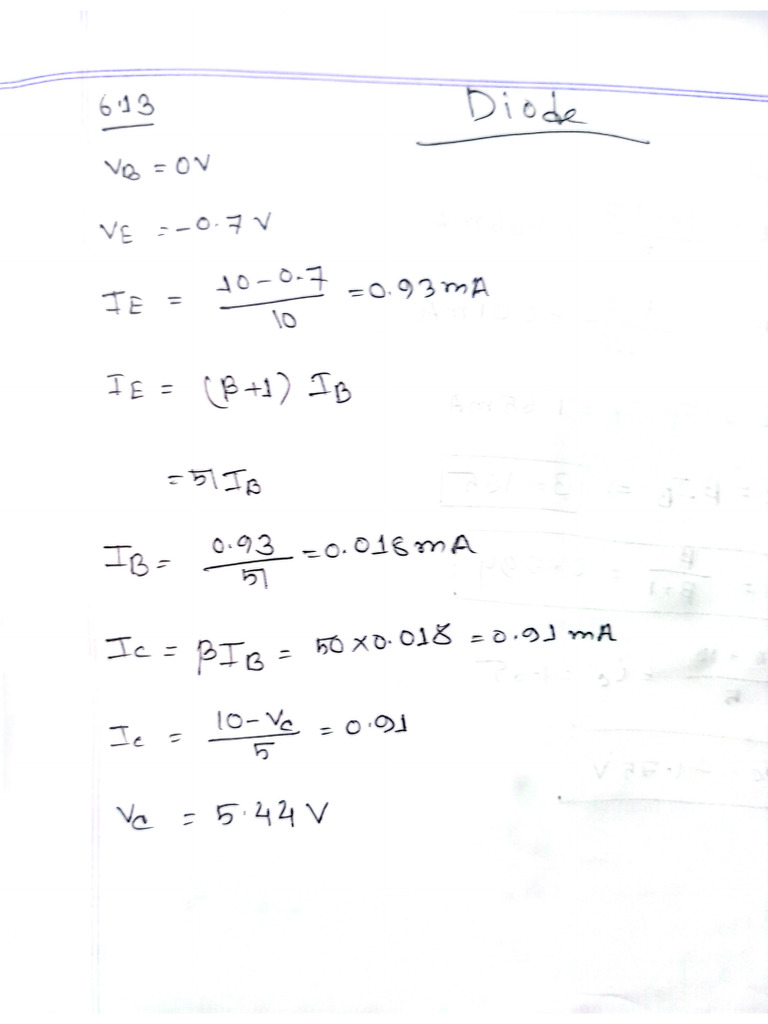 6.13
Diode
VB = 0V
VE = -0.7 V
IE = 10-0.7 / 10 = 0.93 mA
IE = (β+1) IB
= 51 IB
IB = 0.93 / 51 = 0.018 mA
Ic = βIB = 50 x 0.018 = 0.91 mA
Ic = 10-Vc / 5 = 0.91
Vc = 5.44 V